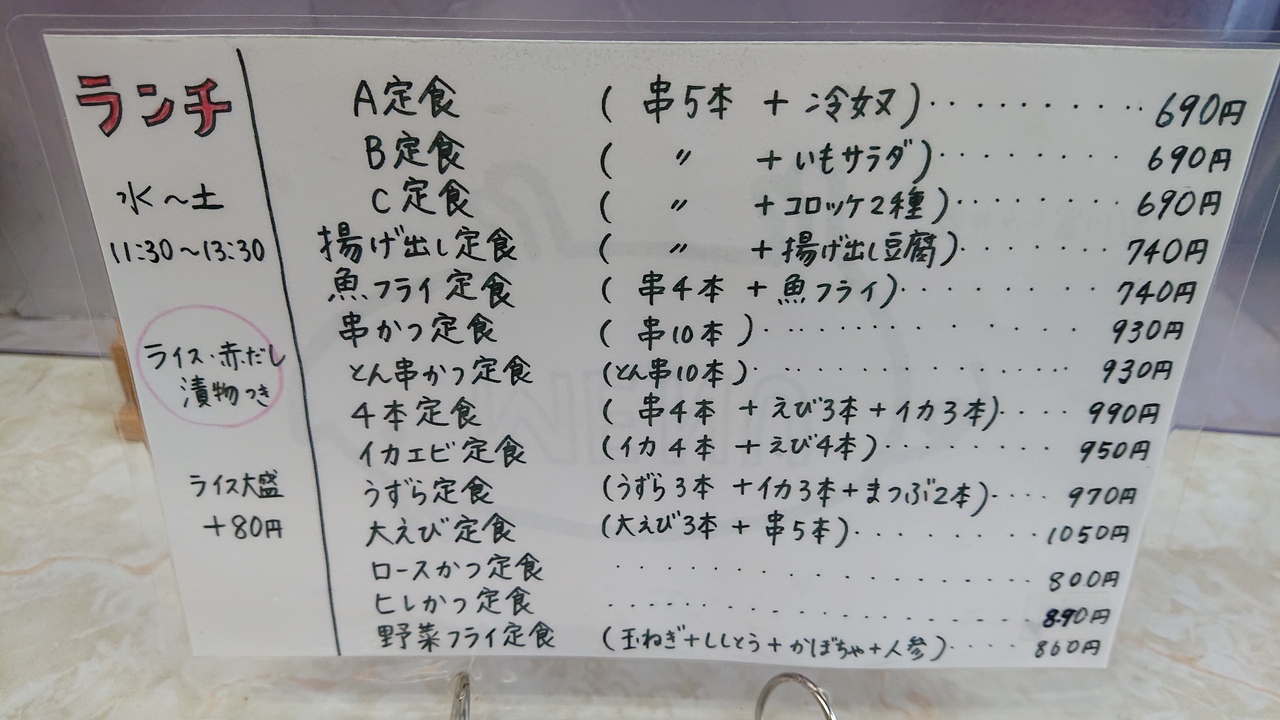 ランチ
水～土
11:30～13:30
ライス・赤だし
漬物つき
ライス大盛
+80円
A定食 ( 串5本 + 冷奴 )・・・・・・・・・・ 690円
B定食 ( 〃 + いもサラダ )・・・・・・・・・ 690円
C定食 ( 〃 + コロッケ2種 )・・・・・・・・ 690円
揚げ出し定食 ( 〃 + 揚げ出し豆腐 )・・・・・・・ 740円
魚フライ定食 ( 串4本 + 魚フライ )・・・・・・・・・ 740円
串かつ定食 ( 串10本 )・・・・・・・・・・・ 930円
とん串かつ定食 (とん串10本 )・・・・・・・・・・・・・ 930円
4本定食 ( 串4本 + えび3本 + イカ3本)・・・・ 990円
イカエビ定食 (イカ4本 + えび4本 )・・・・・・・・・ 950円
うずら定食 (うずら3本 + イカ3本 + まつぶ2本)・・・・ 970円
大えび定食 (大えび3本 + 串5本 )・・・・・・・・・・ 1050円
ロースかつ定食 ・・・・・・・・・・・・・・・ 800円
ヒレかつ定食 ・・・・・・・・・・・・・・・・ 890円
野菜フライ定食 (玉ねぎ+ししとう+かぼちゃ+人参 )・・・・ 860円